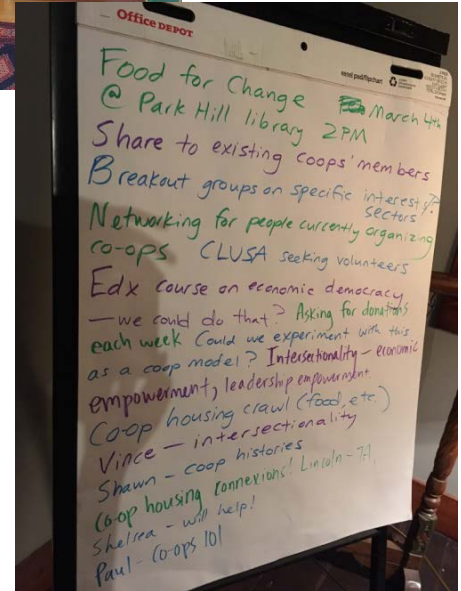 Office DEPOT
easel pad/flipchart
Food for Change March 4th
@ Park Hill library 2PM
Share to existing coops' members
Breakout groups on specific interests/sectors?
Networking for people currently organizing
co-ops CLUSA seeking volunteers
Edx course on economic democracy
— we could do that? Asking for donations
each week Could we experiment with this
as a coop model? Intersectionality — economic
empowerment, leadership empowerment
Co-op housing crawl (food, etc.)
Vince — intersectionality
Shawn — coop histories
Co-op housing connexions! Lincoln -
Shelsea - will help!
Paul - Co-ops 101